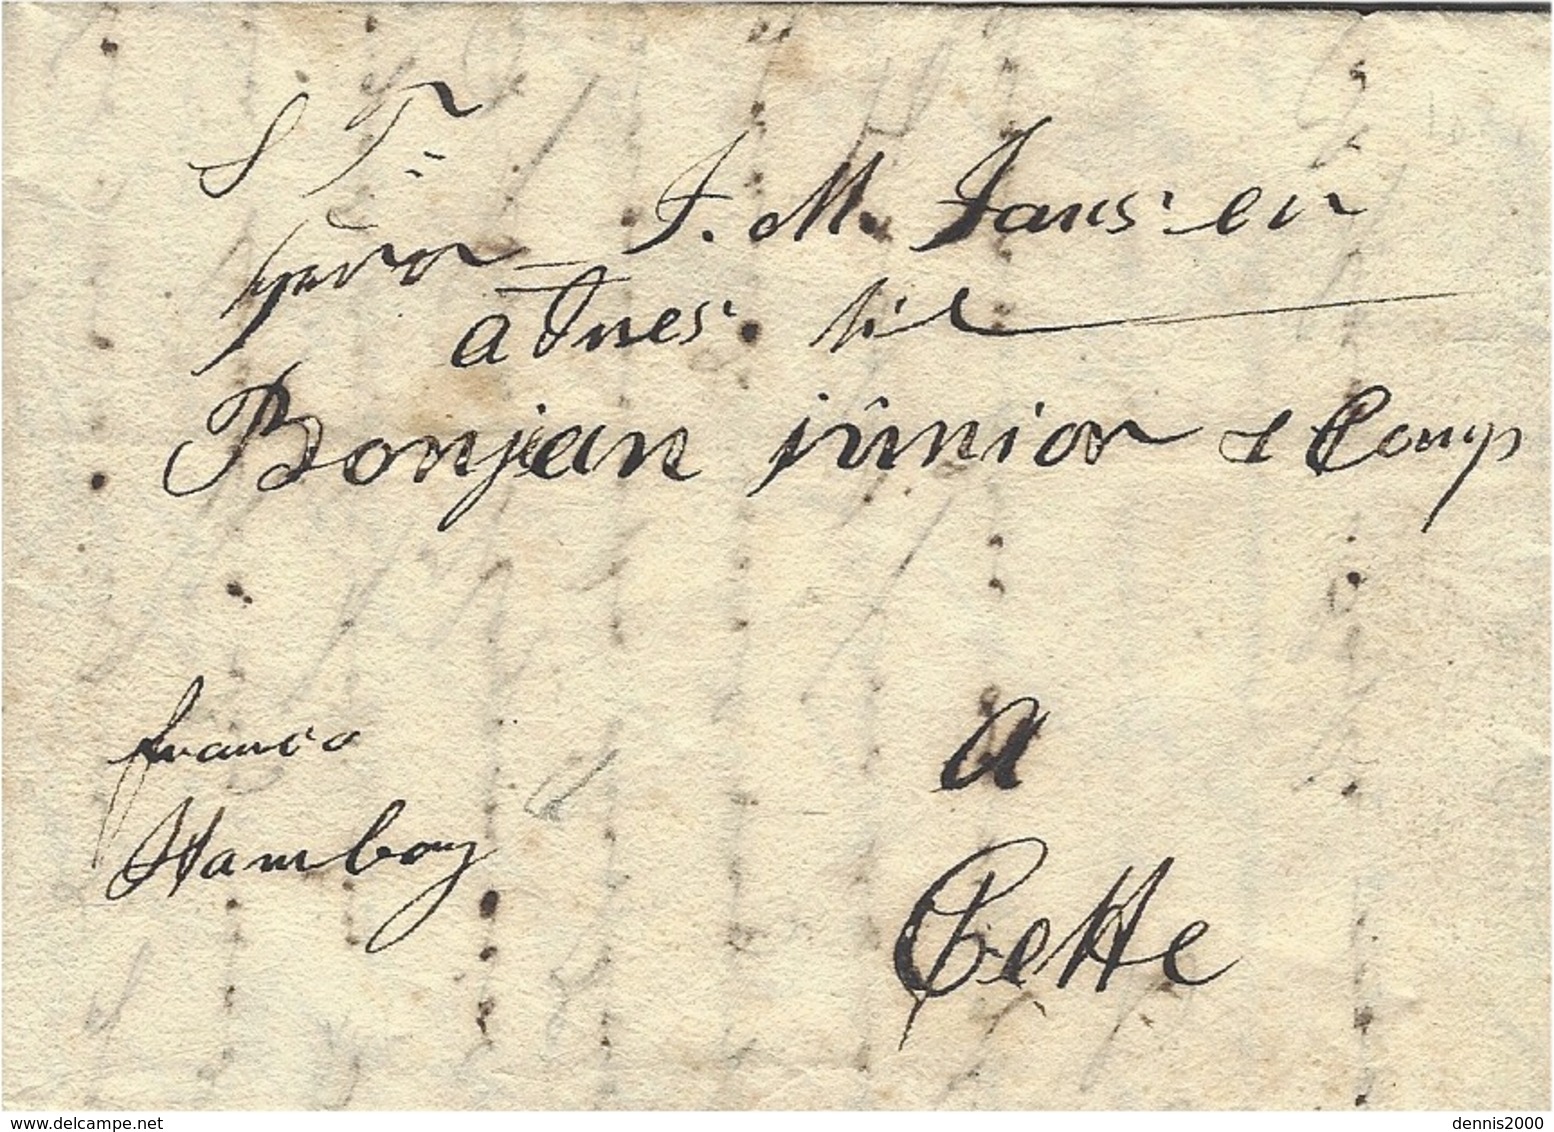 S Tr
Herrn J. M. Janssen
adres:
Bonjean jûnior & Comp
franco
Hamborg
a
Cette
delcampe.net
dennis2000